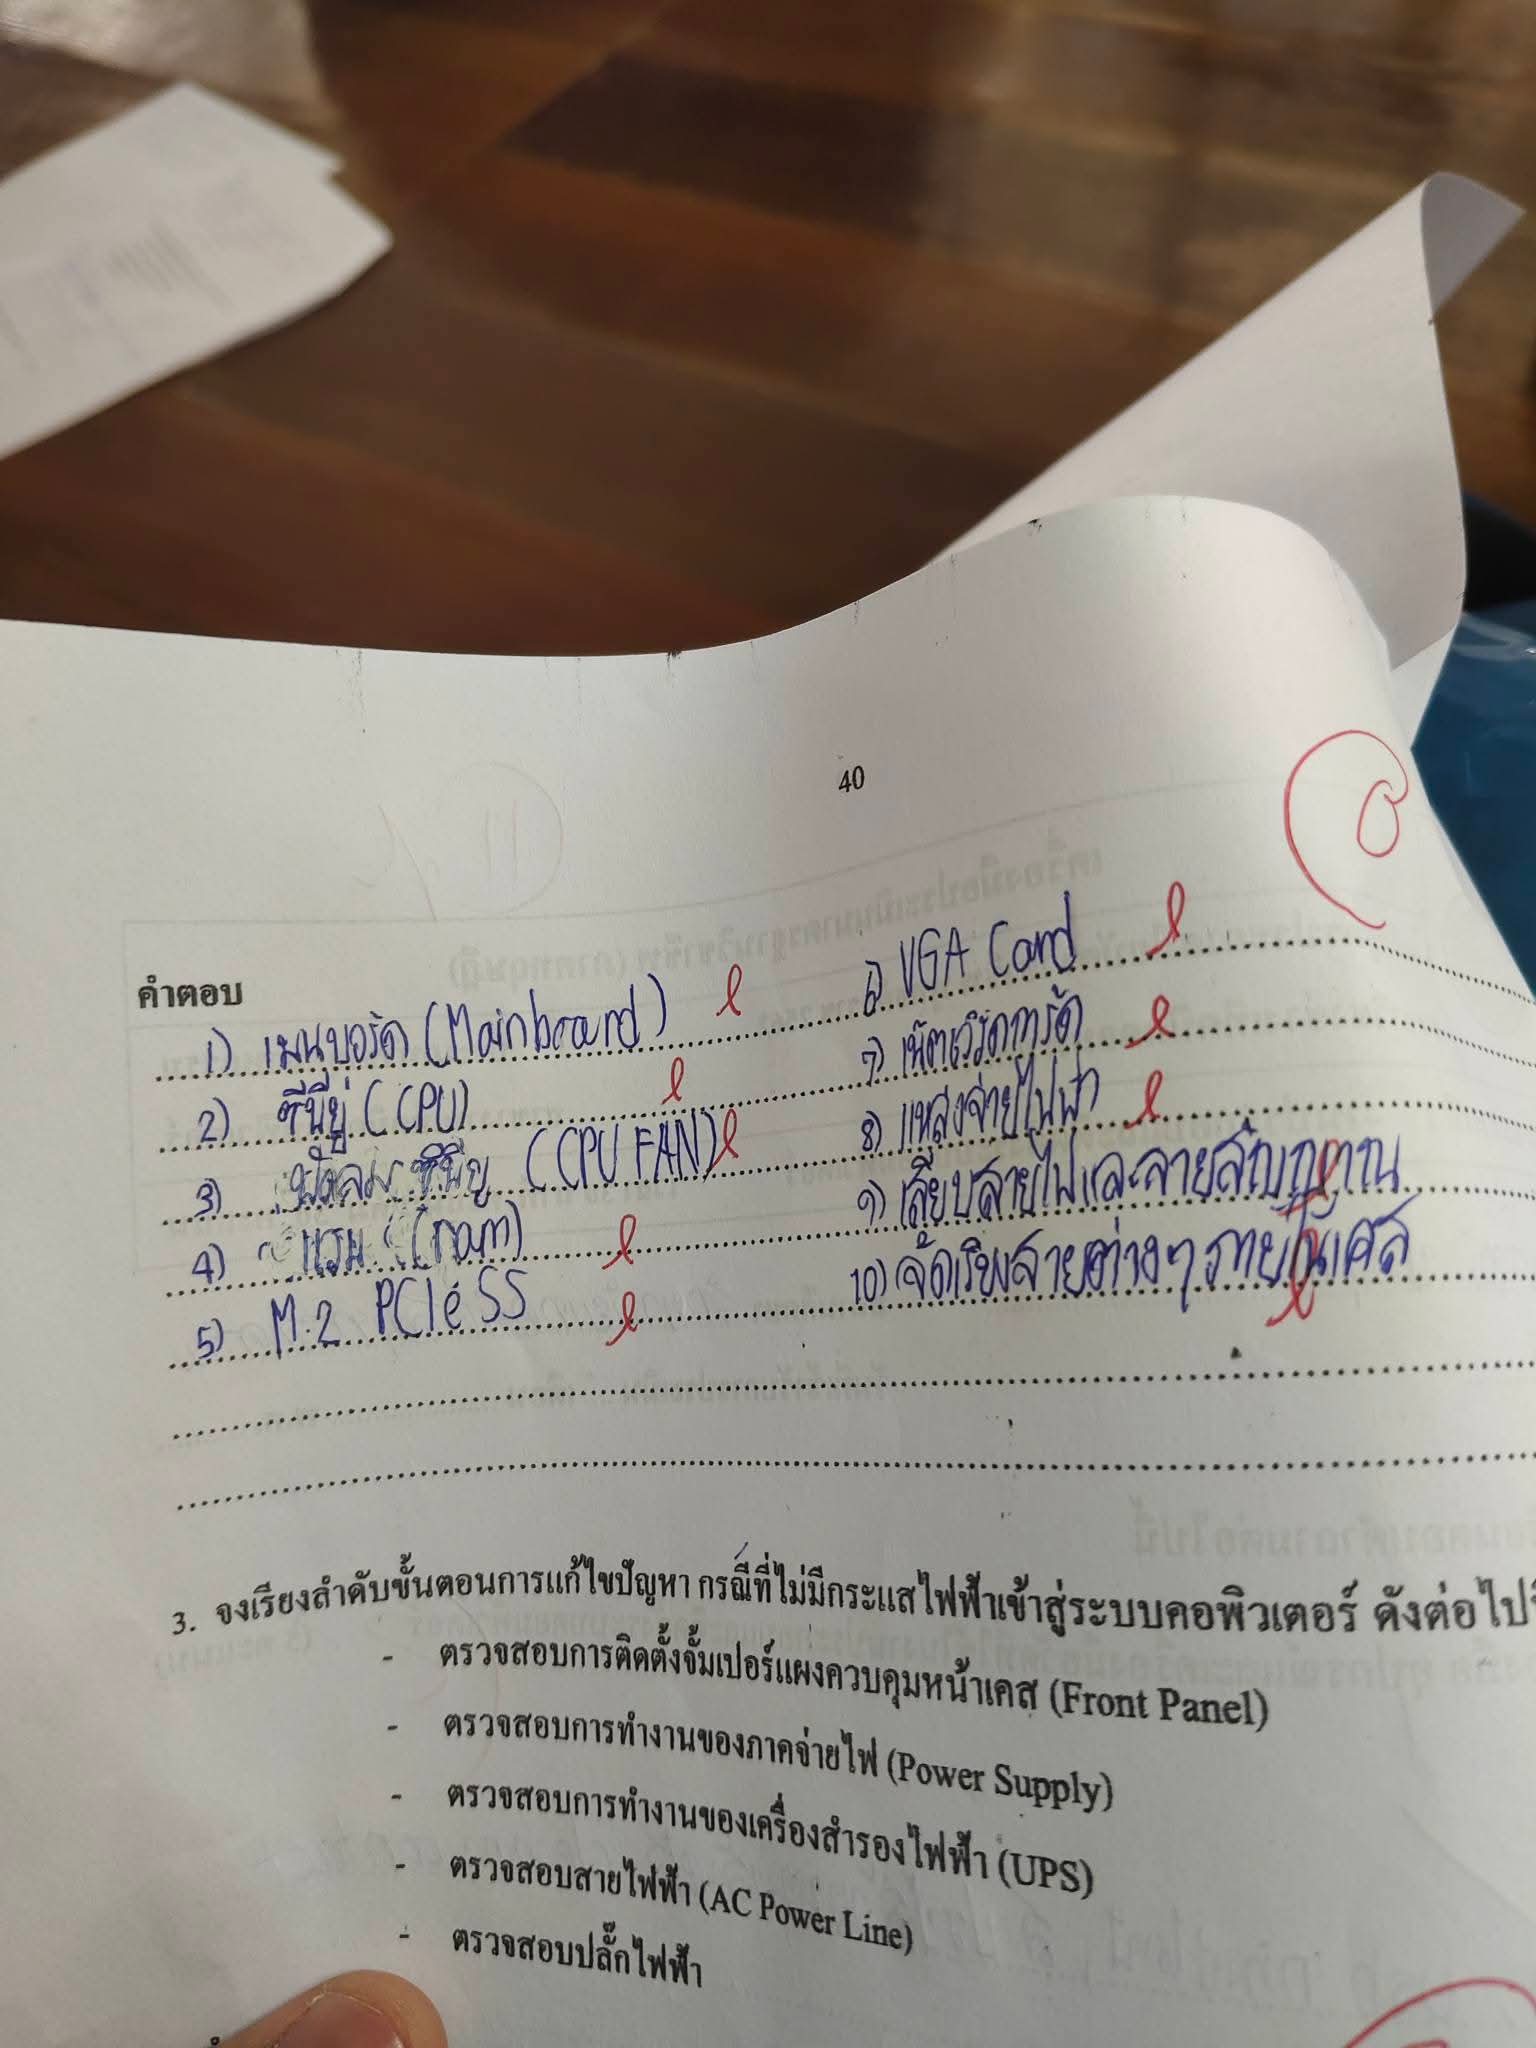 40
คำตอบ
1) เมนบอร์ด (Mainboard)
2) ซีพียู (CPU)
3) พัดลม ซีพียู (CPU FAN)
4) แรม (ram)
5) M.2 PCIe SS
6) VGA Card
7) เน็ตเวิร์ดการ์ด
8) แหล่งจ่ายไฟฟ้า
9) เสียบสายไฟและสายสัญญาณ
10) จัดเรียงสายต่างๆ ภายในเคส
3. จงเรียงลำดับขั้นตอนการแก้ไขปัญหา กรณีที่ไม่มีกระแสไฟฟ้าเข้าสู่ระบบคอพิวเตอร์ ดังต่อไป
- ตรวจสอบการติดตั้งจั้มเปอร์แผงควบคุมหน้าเคส (Front Panel)
- ตรวจสอบการทำงานของภาคจ่ายไฟ (Power Supply)
- ตรวจสอบการทำงานของเครื่องสำรองไฟฟ้า (UPS)
- ตรวจสอบสายไฟฟ้า (AC Power Line)
- ตรวจสอบปลั๊กไฟฟ้า